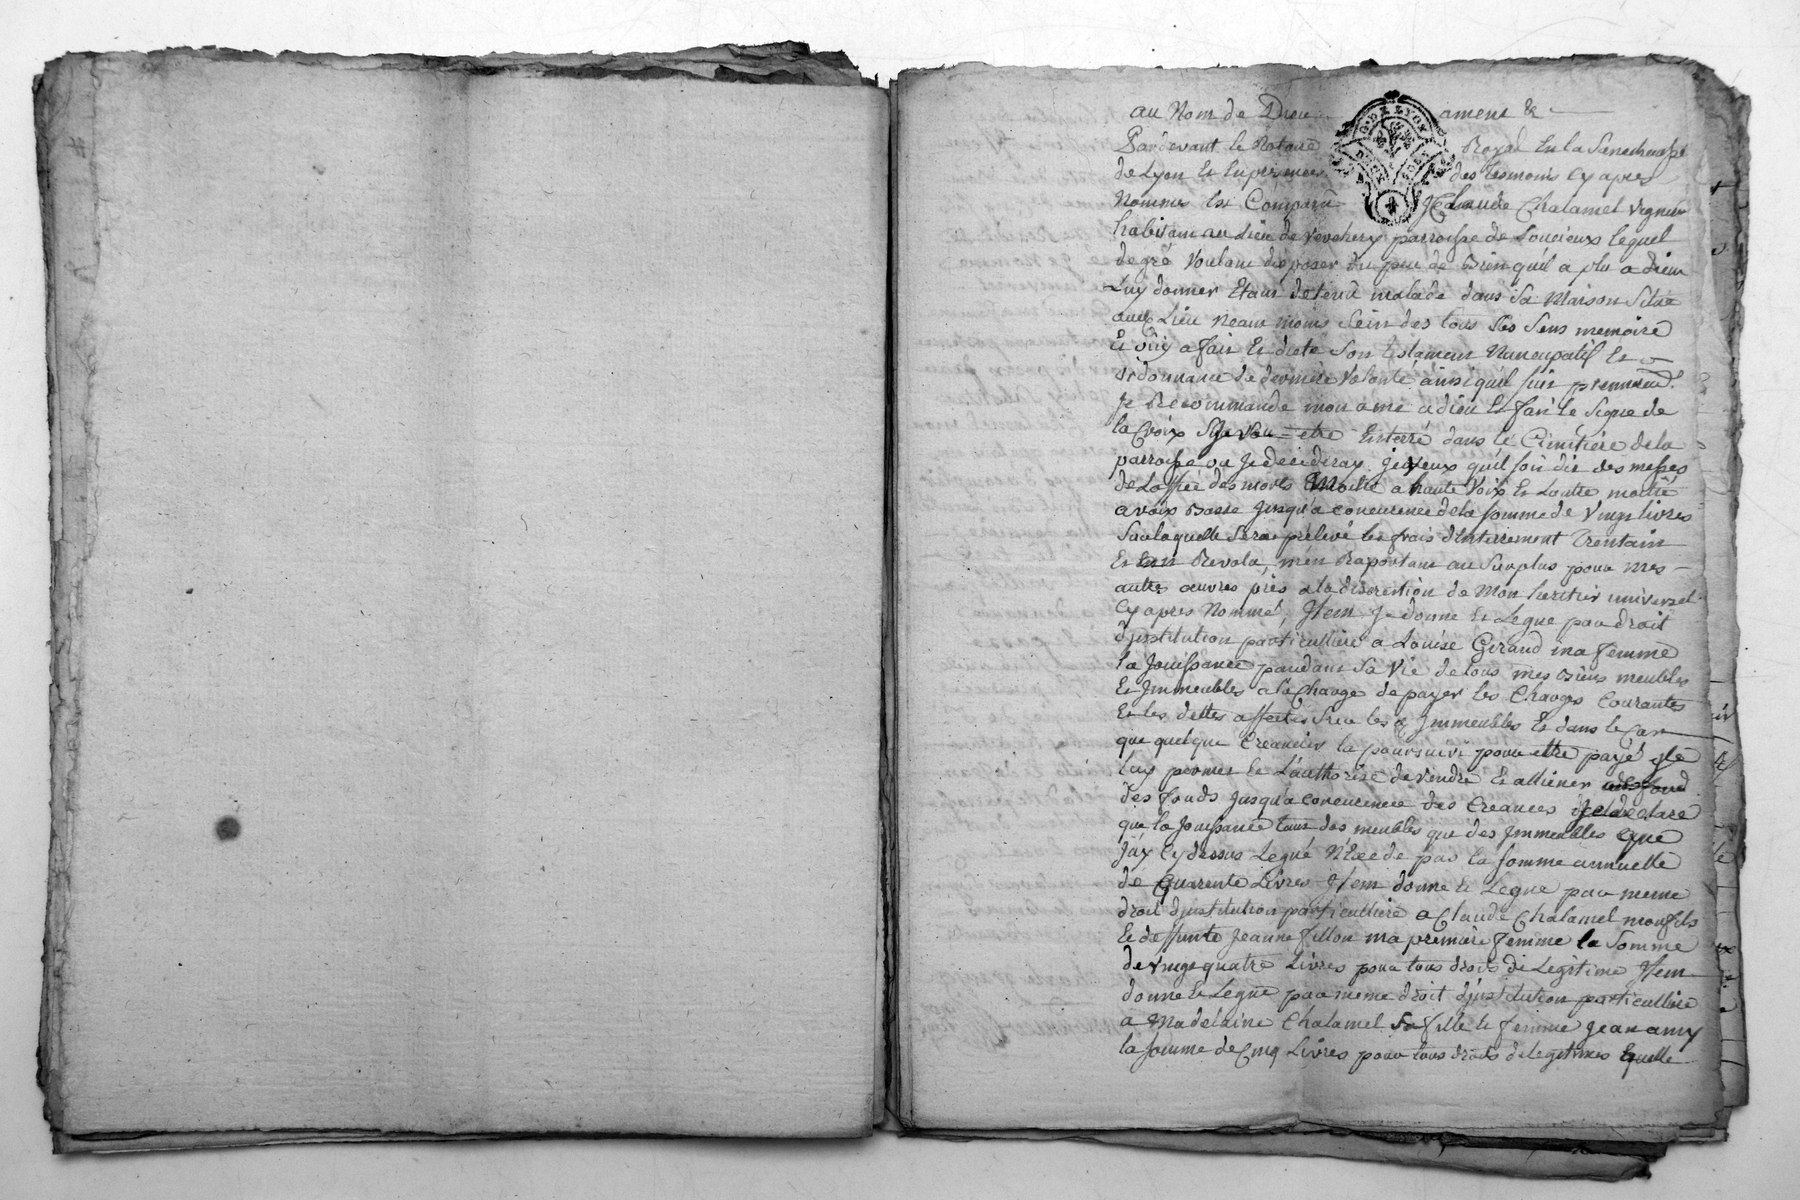 au Nom de Dieu amene &
G. DE LYON
Pardevant le Notaire Royal En la Senechaussé
de Lyon Et En presences des tesmoins Cy apres
Nommés Est Comparu Claude Chalamel vigneron
habitant au Lieu de parroisse de Loucieux lequel
de gré Voulant disposer du peu de Bien qu'il a plu a dieu
Luy donner Etant detenu malade dans sa Maison Size
aud Lieu neant moins sein des tous ses sens memoire
Et ouïy a fait Et dicté son testament Nuncupatif Et
ordonnance de derniere Volonté ainsi quil suit premierem.t
Je Recommande mon ame a dieu Et fait le signe de
la Croix Je veu etre Enterré dans le Cimitiere de la
parroisse ou Je decideray Je veux qu'il soit dit des messes
de Loffice des morts Moitié a haute Voix Et Lautre moitié
a voix Basse Jusqu'a concurence de la somme de Vingt livres
Sur laquelle Sera prélevé les frais d'Enterrement Trentain
Et Revola, m'en Raportant au Surplus pour mes
autres œuvres pies a la discrention de Mon heritier universel
Cy apres Nommé, Item Je donne Et Legue par droit
d'institution particulliere a Louise Giraud ma femme
la Jouissance pandant sa Vie de tous mes Biens meubles
Et Immeubles a la Charge de payer les Charges Courantes
Et les dettes affectés sur les d Immeubles Et dans le Cas
que quelque Creancier la poursuivi pour etre payé Je
luy permet Et L'authorise de vendre Et alliener
des fonds Jusqu'a concurence des Creances Je declare
que la Jouissance tant des meubles que des Immeubles que
J'ay Cy dessus Legué N'Excede pas la somme annuelle
de Quarente Livres Item donne Et Legue par meme
droit d'institution particulliere a Claude Chalamel mon fils
Et de deffunte Jeanne fillon ma premiere femme la Somme
de Vingt quatre Livres pour tous droits de Legitime Item
donne Et Legue par meme droit d'institution particulliere
a Madelaine Chalamel sa fille Et femme Jean amy
la somme de Cinq Livres pour tous droits de legitimes Equelle